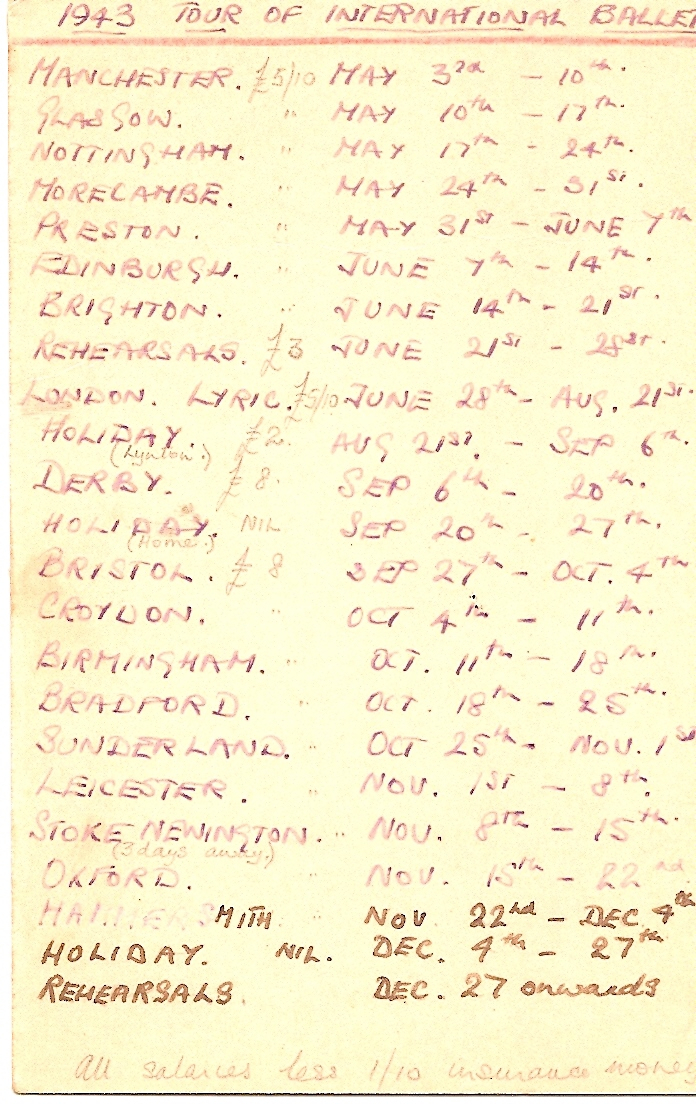 1943 TOUR OF INTERNATIONAL BALLE
MANCHESTER. £5/10 MAY 3rd - 10th.
GLASGOW. " MAY 10th - 17th.
NOTTINGHAM. " MAY 17th - 24th.
MORECAMBE. " MAY 24th - 31st.
PRESTON. " MAY 31st - JUNE 7th
EDINBURGH. " JUNE 7th - 14th.
BRIGHTON. " JUNE 14th - 21st.
REHEARSALS. £3 JUNE 21st - 28st.
LONDON. LYRIC. £5/10 JUNE 28th - AUG. 21st.
HOLIDAY. £2. AUG 21st. - SEP 6th.
(Lynton.)
DERBY. £8. SEP 6th - 20th.
HOLIDAY. NIL SEP 20th - 27th.
(Home.)
BRISTOL. £8 SEP 27th - OCT. 4th
CROYDON. " OCT 4th - 11th.
BIRMINGHAM. " OCT. 11th - 18th.
BRADFORD. " OCT. 18th - 25th.
SUNDERLAND. " OCT 25th - NOV. 1st
LEICESTER. " NOV. 1st - 8th.
STOKE NEWINGTON. " NOV. 8th - 15th.
(3 days away)
OXFORD. " NOV. 15th - 22nd.
HAMMERSMITH NOV 22nd - DEC 4th
HOLIDAY. NIL. DEC. 4th - 27th
REHEARSALS. DEC. 27 onwards
All salaries less 1/10 insurance money